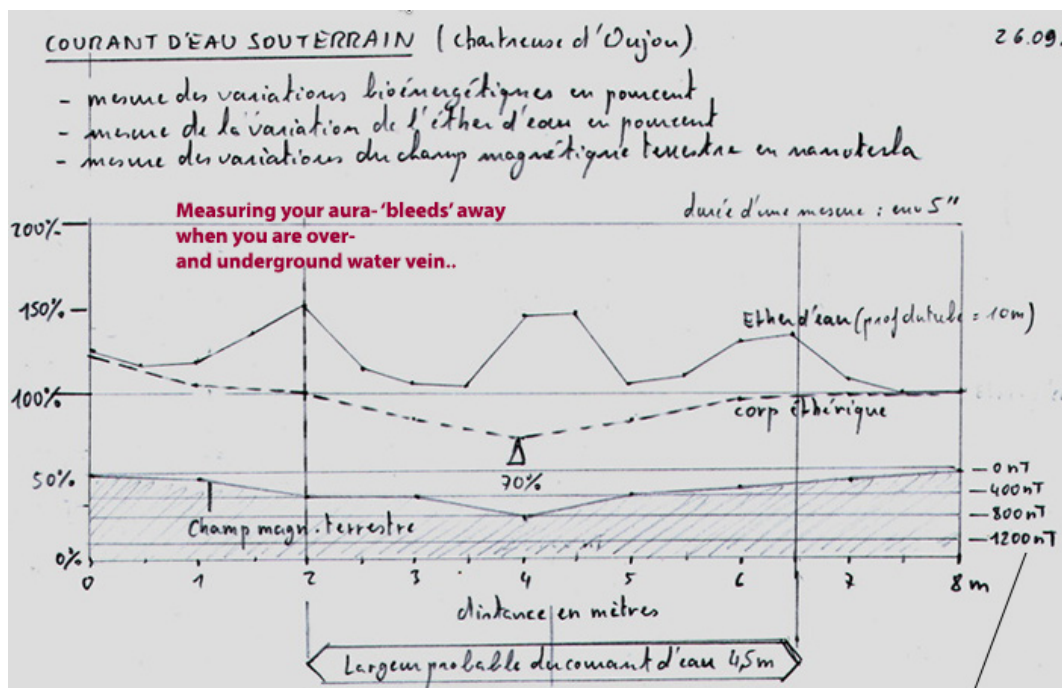 COURANT D'EAU SOUTERRAIN (Chartreuse d'Oujon) 26.09.
- mesure des variations bioénergétiques en pourcent
- mesure de la variation de l'éther d'eau en pourcent
- mesure des variations du champ magnétique terrestre en nanotesla
Measuring your aura- 'bleeds' away
when you are over-
and underground water vein..
durée d'une mesure : env 5"
200%
150%
Ether d'eau (prof du tube = 10m)
100%
corp éthérique
50%
70%
0 nT
400nT
800nT
1200nT
Champ magn. terrestre
0%
0 1 2 3 4 5 6 7 8 m
distance en mètres
Largeur probable du courant d'eau 4,5m